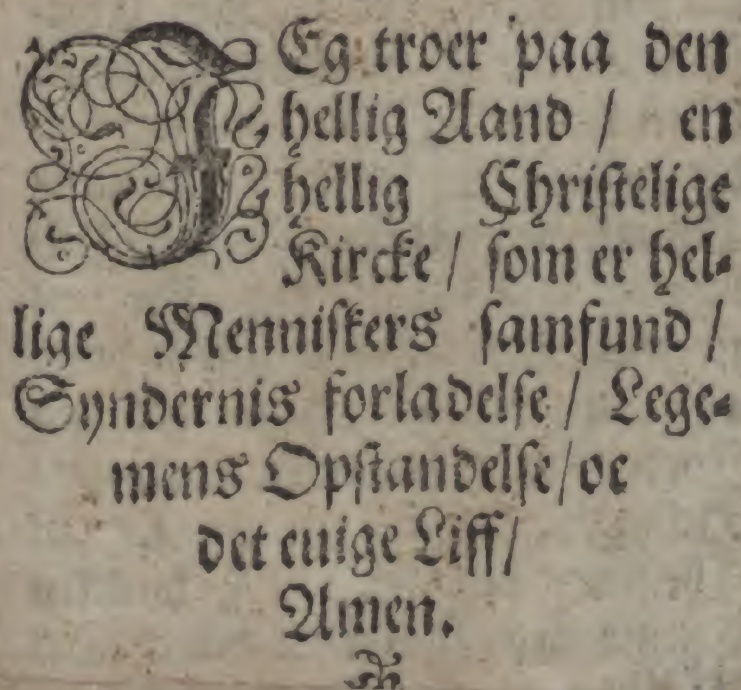 JEg troer paa den
hellig Aand / en
hellig Christelige
Kircke / som er hel-
lige Menniskers samfund /
Syndernis forladelse / Lege-
mens Opstandelse / oc
det euige Liff /
Amen.